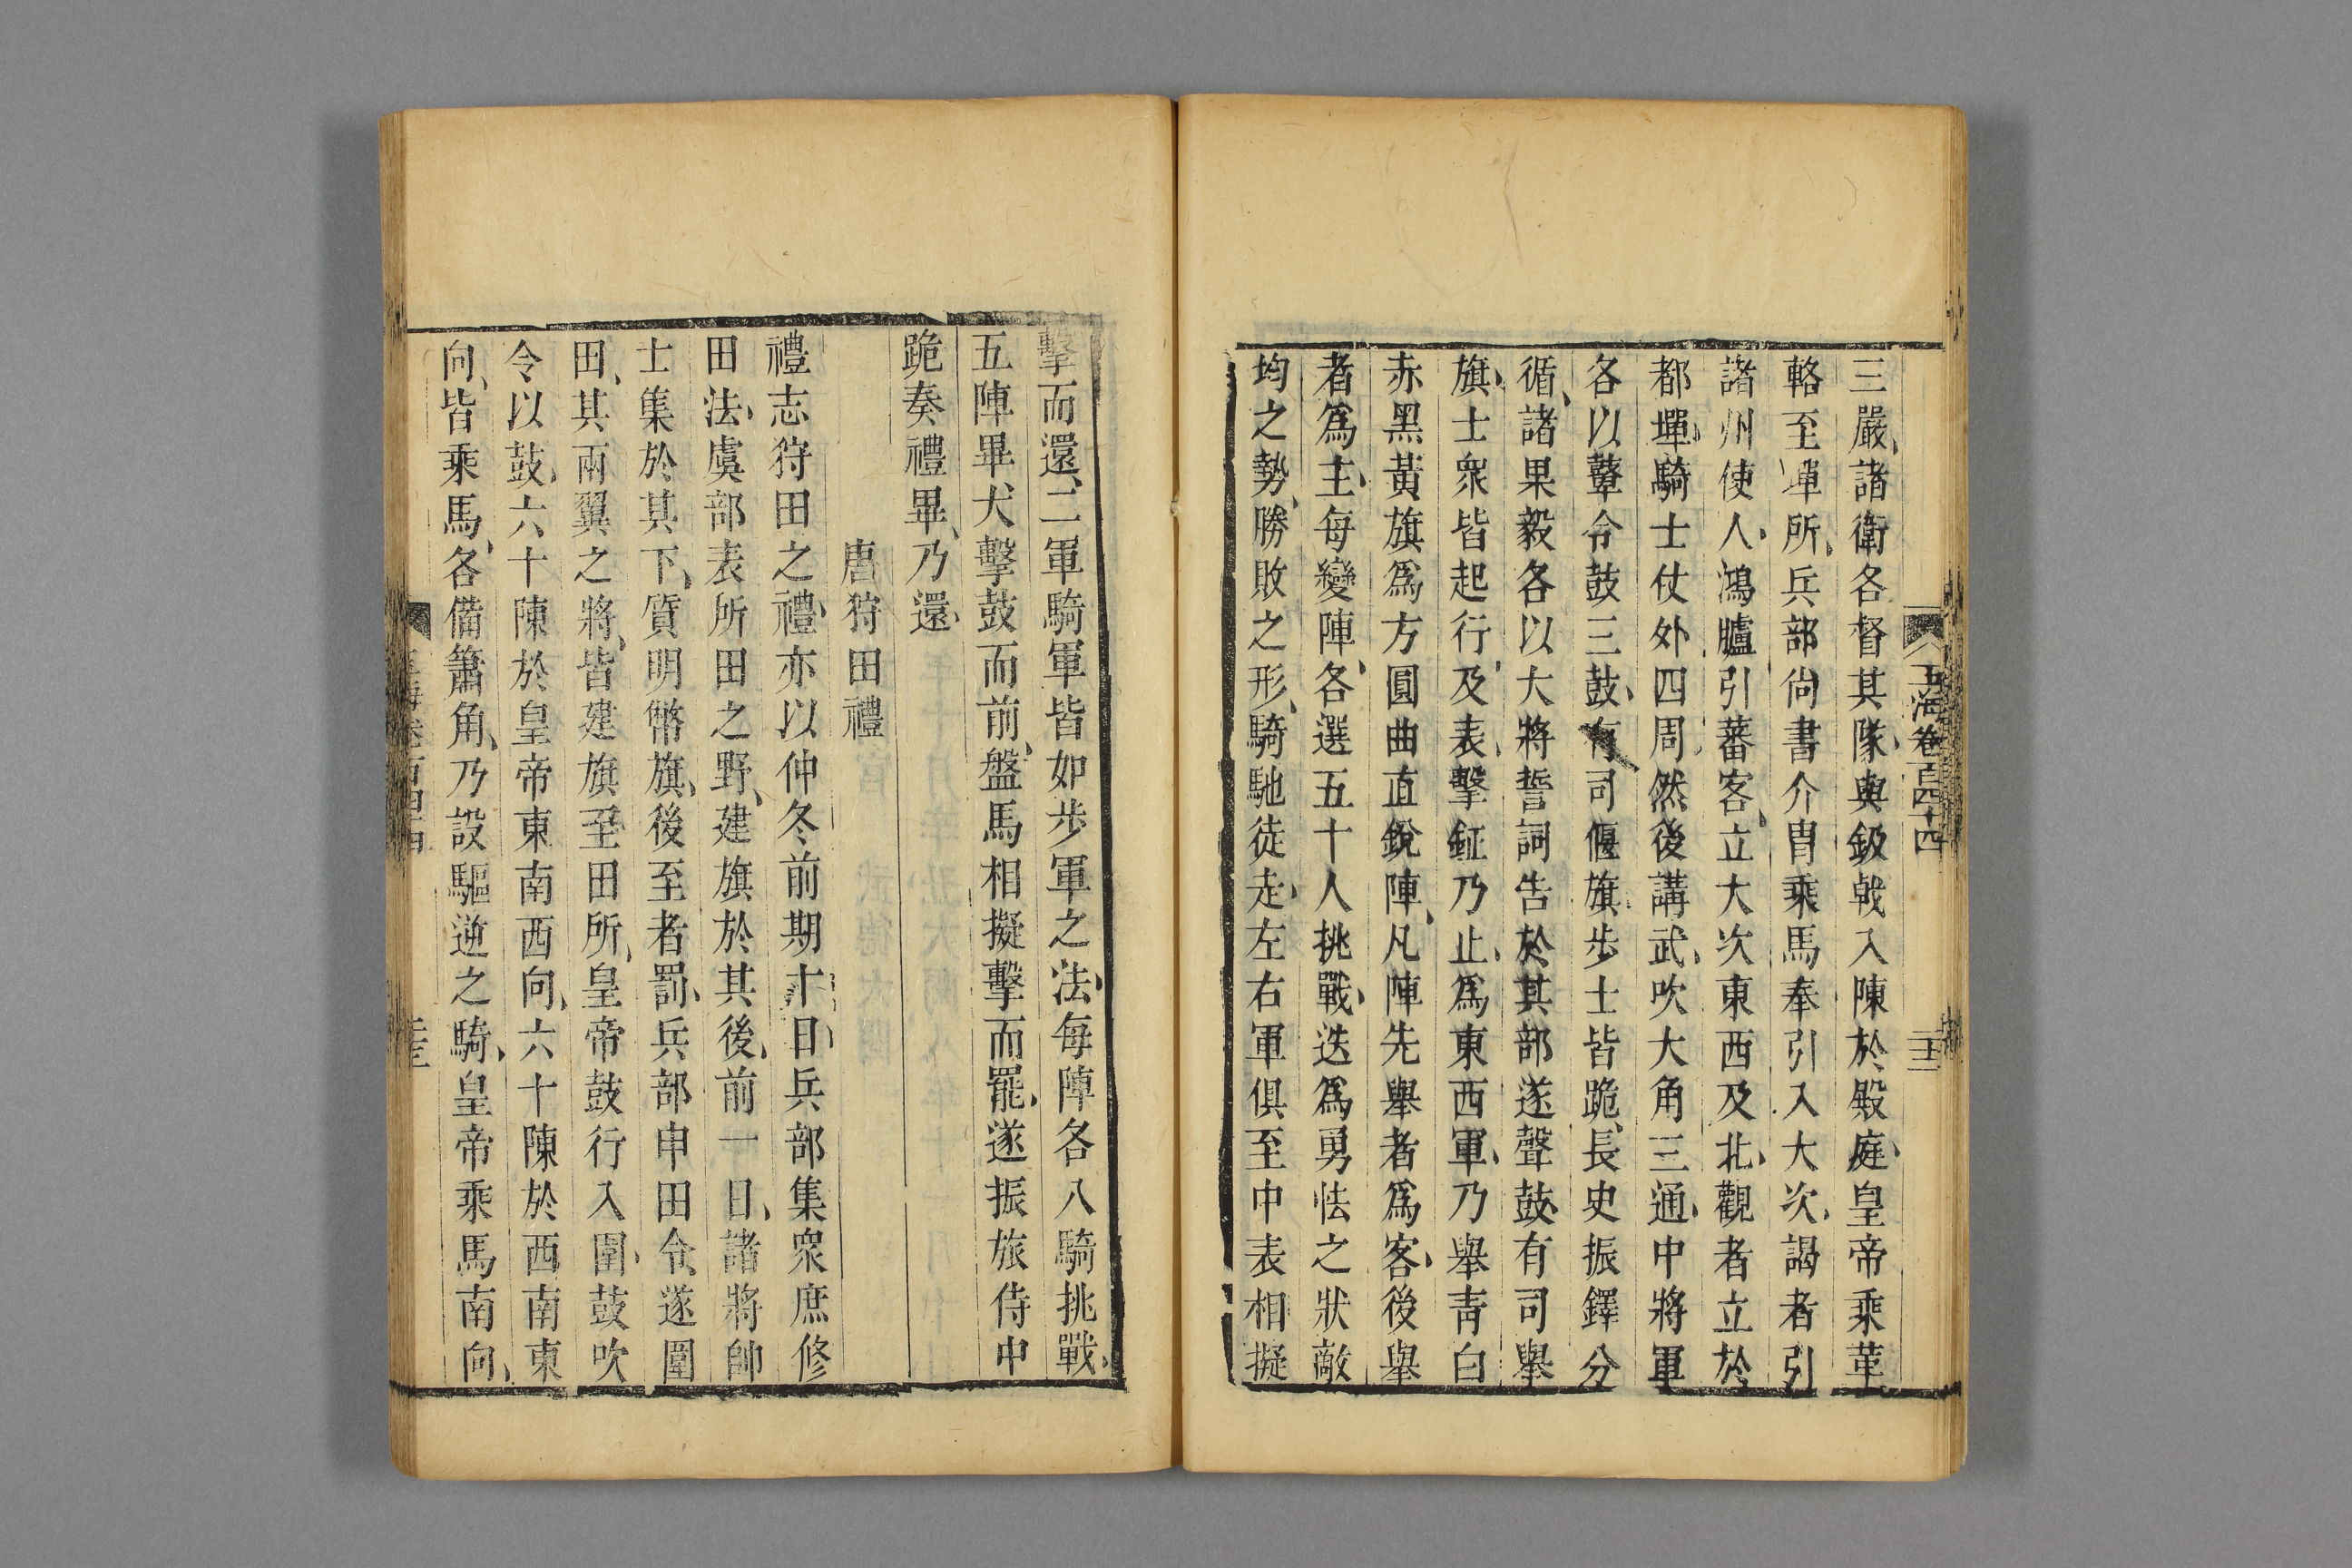 玉海卷百四十四
三嚴、諸衛各督其隊、與鈒戟入陳於殿庭、皇帝乘革
輅至墠所、兵部尚書介胄乘馬奉引入大次、謁者引
諸州使人、鴻臚引蕃客、立大次東西及北、觀者立於
都墠、騎士仗外四周、然後講武、吹大角三通、中將軍
各以鼙令鼓三鼓、有司偃旗步士皆跪、長史振鐸分
循、諸果毅各以大將誓詞告於其部遂聲鼓、有司舉
旗、士衆皆起行、及表、擊鉦乃止、爲東西軍、乃舉青白
赤黑黃旗爲方圓曲直銳陣、凡陣先舉者爲客、後舉
者爲主、每變陣、各選五十人挑戰、迭爲勇怯之狀敵
均之勢、勝敗之形、騎馳徒走、左右軍俱至中表相擬
擊而還、二軍騎軍皆如步軍之法、每陣各八騎挑戰、
五陣畢犬擊鼓而前、盤馬相擬擊而罷、遂振旅侍中
跪奏禮畢、乃還、
唐狩田禮
禮志狩田之禮、亦以仲冬前期十日、兵部集衆庶修
田法、虞部表所田之野、建旗於其後、前一日、諸將帥
士集於其下、質明幣旗、後至者罰、兵部申田令、遂圍
田、其兩翼之將、皆建旗至田所、皇帝鼓行入圍、鼓吹
令以鼓、六十陳於皇帝東南西向、六十陳於西南東
向、皆乘馬、各備簫角、乃設驅逆之騎、皇帝乘馬南向、